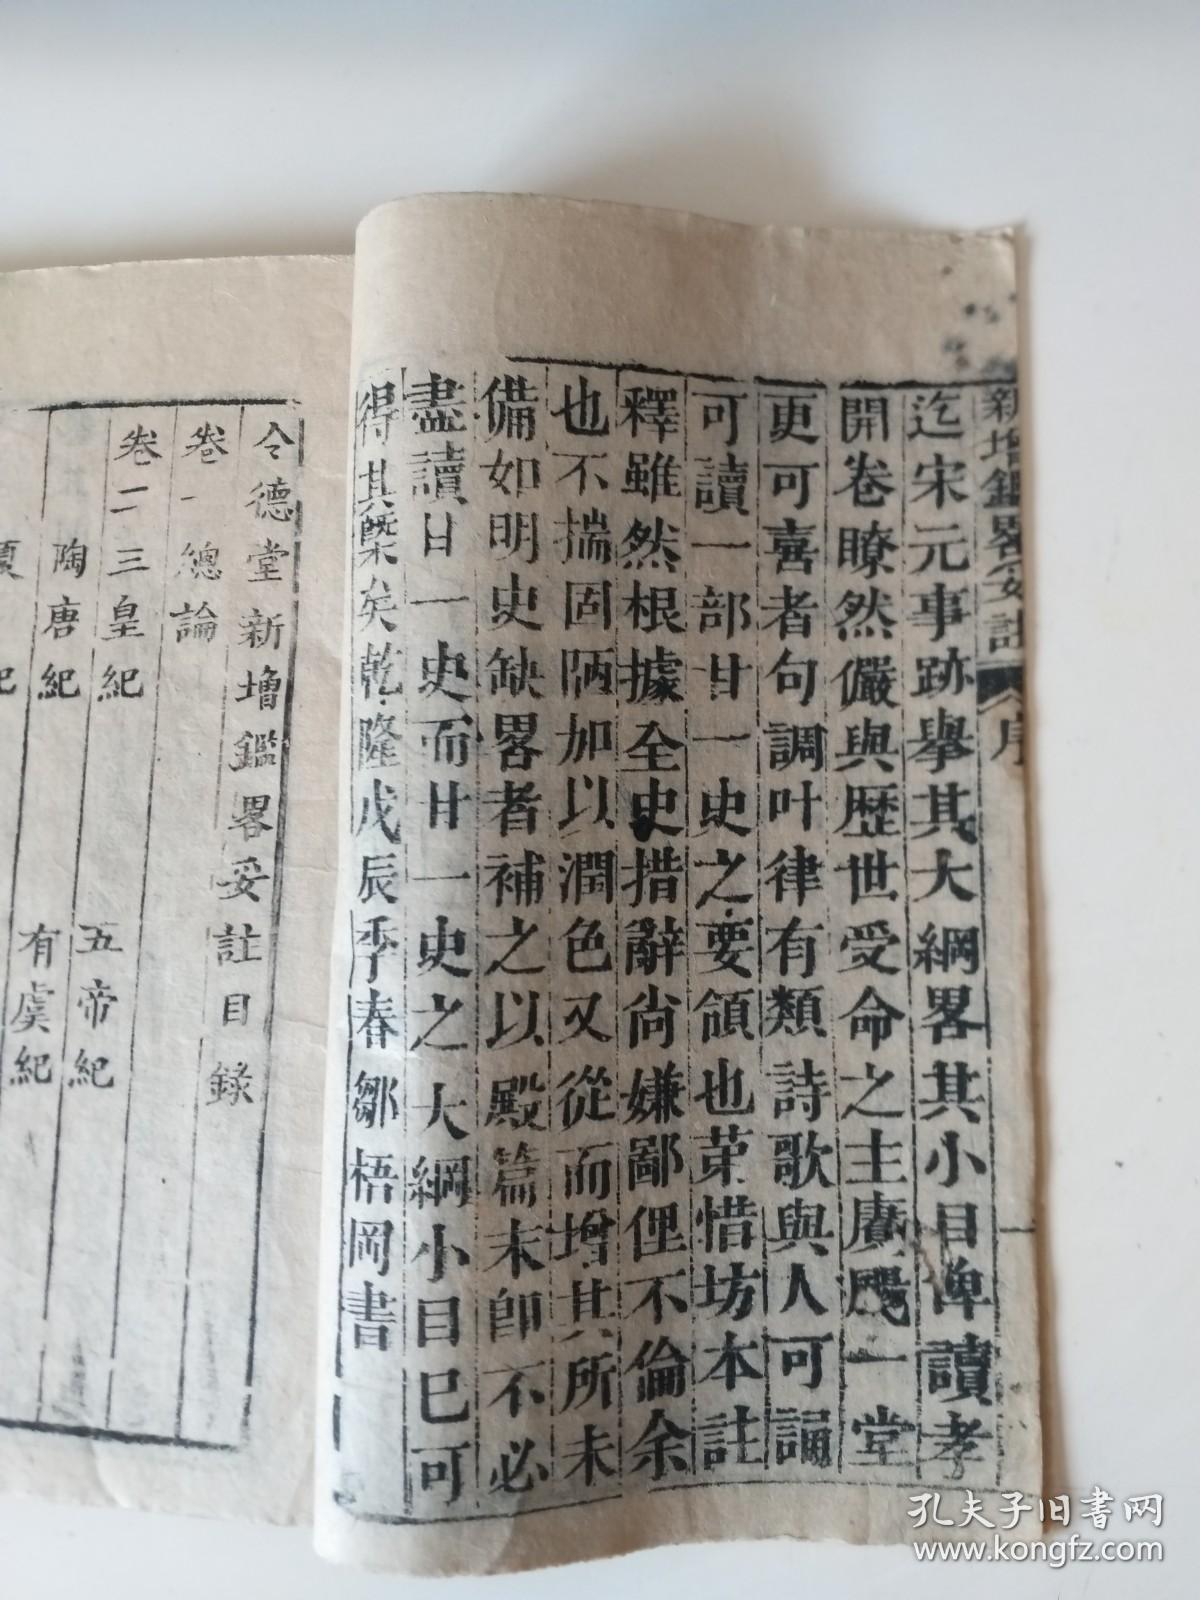 新增鑑畧妥註 序 一
迄宋元事跡擧其大綱畧其小目俾讀孝
開卷瞭然儼與歴世受命之主賡颺一堂
更可喜者句調叶律有類詩歌與人可誦
可讀一部廿一史之要領也苐惜坊本註
釋雖然根據全史措辭尚嫌鄙俚不倫余
也不揣固陋加以潤色又從而增其所未
備如明史缺畧者補之以殿篇末即不必
盡讀廿一史而廿一史之大綱小目已可
得其槩矣乾隆戊辰季春鄒梧岡書
令德堂新增鑑畧妥註目錄
卷一總論
卷二三皇紀 五帝紀
陶唐紀 有虞紀
夏紀
孔夫子旧书网
www.kongfz.com